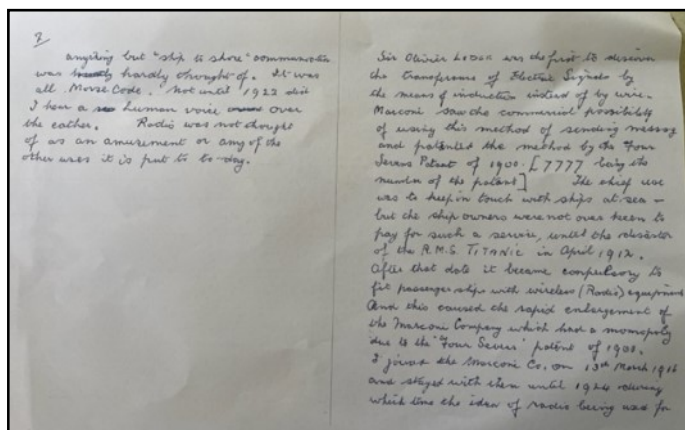 2
anything but "ship to shore" communication
was hardly thought of. It was
all Morse Code. Not until 1922 did
I hear a human voice over
the eather. Radio was not thought
of as an amusement or any of the
other uses it is put to to-day.
Sir Olivier LODGE was the first to discover
the transferance of Electric Signals by
the means of induction instead of by wire.
Marconi saw the commercial possibility
of using this method of sending messag
and patented the method by the Four
Sevens Patent of 1900. [7777 being the
number of the patent] The chief use
was to keep in touch with ships at sea –
but the ship owners were not over keen to
pay for such a service, until the disaster
of the R.M.S. TITANIC in April 1912.
After that date it became compulsory to
fit passenger ships with wireless (Radio) equipment
And this caused the rapid enlargement of
the Marconi Company which had a monopoly
due to the "Four Sevens" patent of 1900.
I joined the Marconi Co. on 13th March
and stayed with them until 1924 during
which time the idea of radio being used for